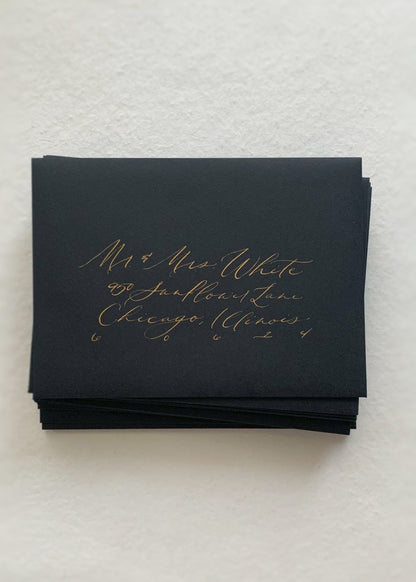 Mr & Mrs White
950 Sunflower Lane
Chicago, Illinois.
60624